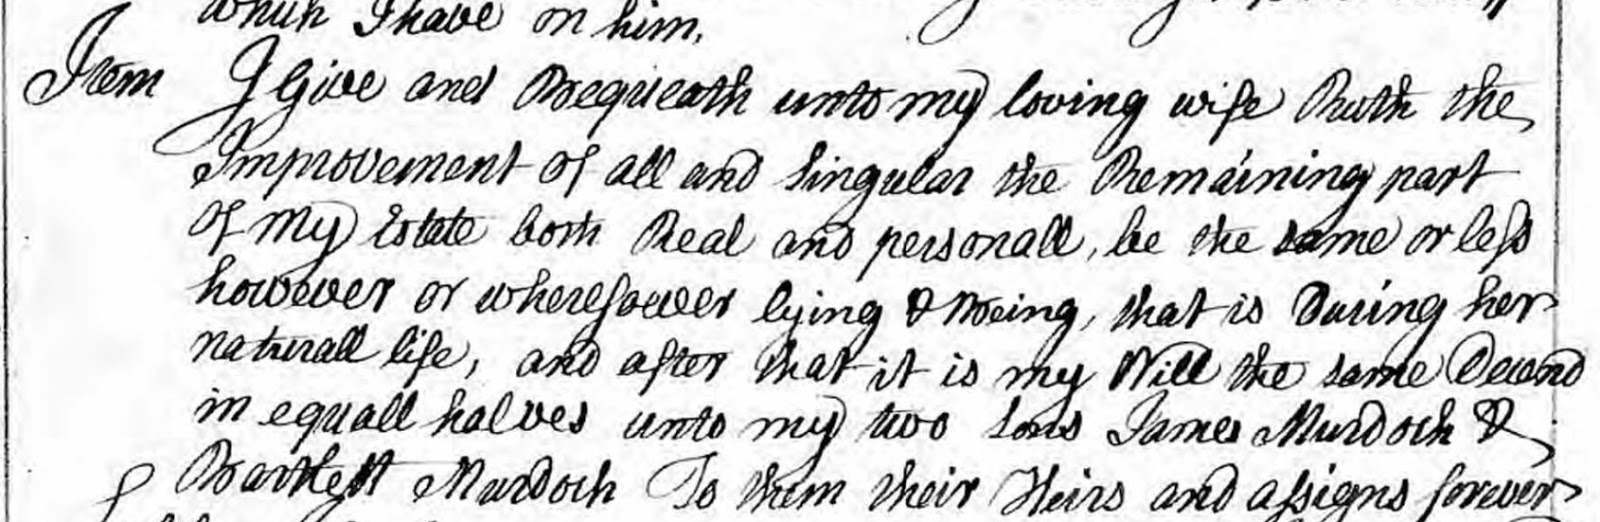 which I have on him,
Item I Give and Bequeath unto my loving wife Ruth the
Improvement of all and Singular the Remaining part
of my Estate both Real and personall, be the same or less
however or wheresoever lying & Being, that is During her
naturall life, and after that it is my Will the same Decend
in equall halves unto my two Sons James Murdoch &
Bartlett Murdoch To them their Heirs and assigns forever